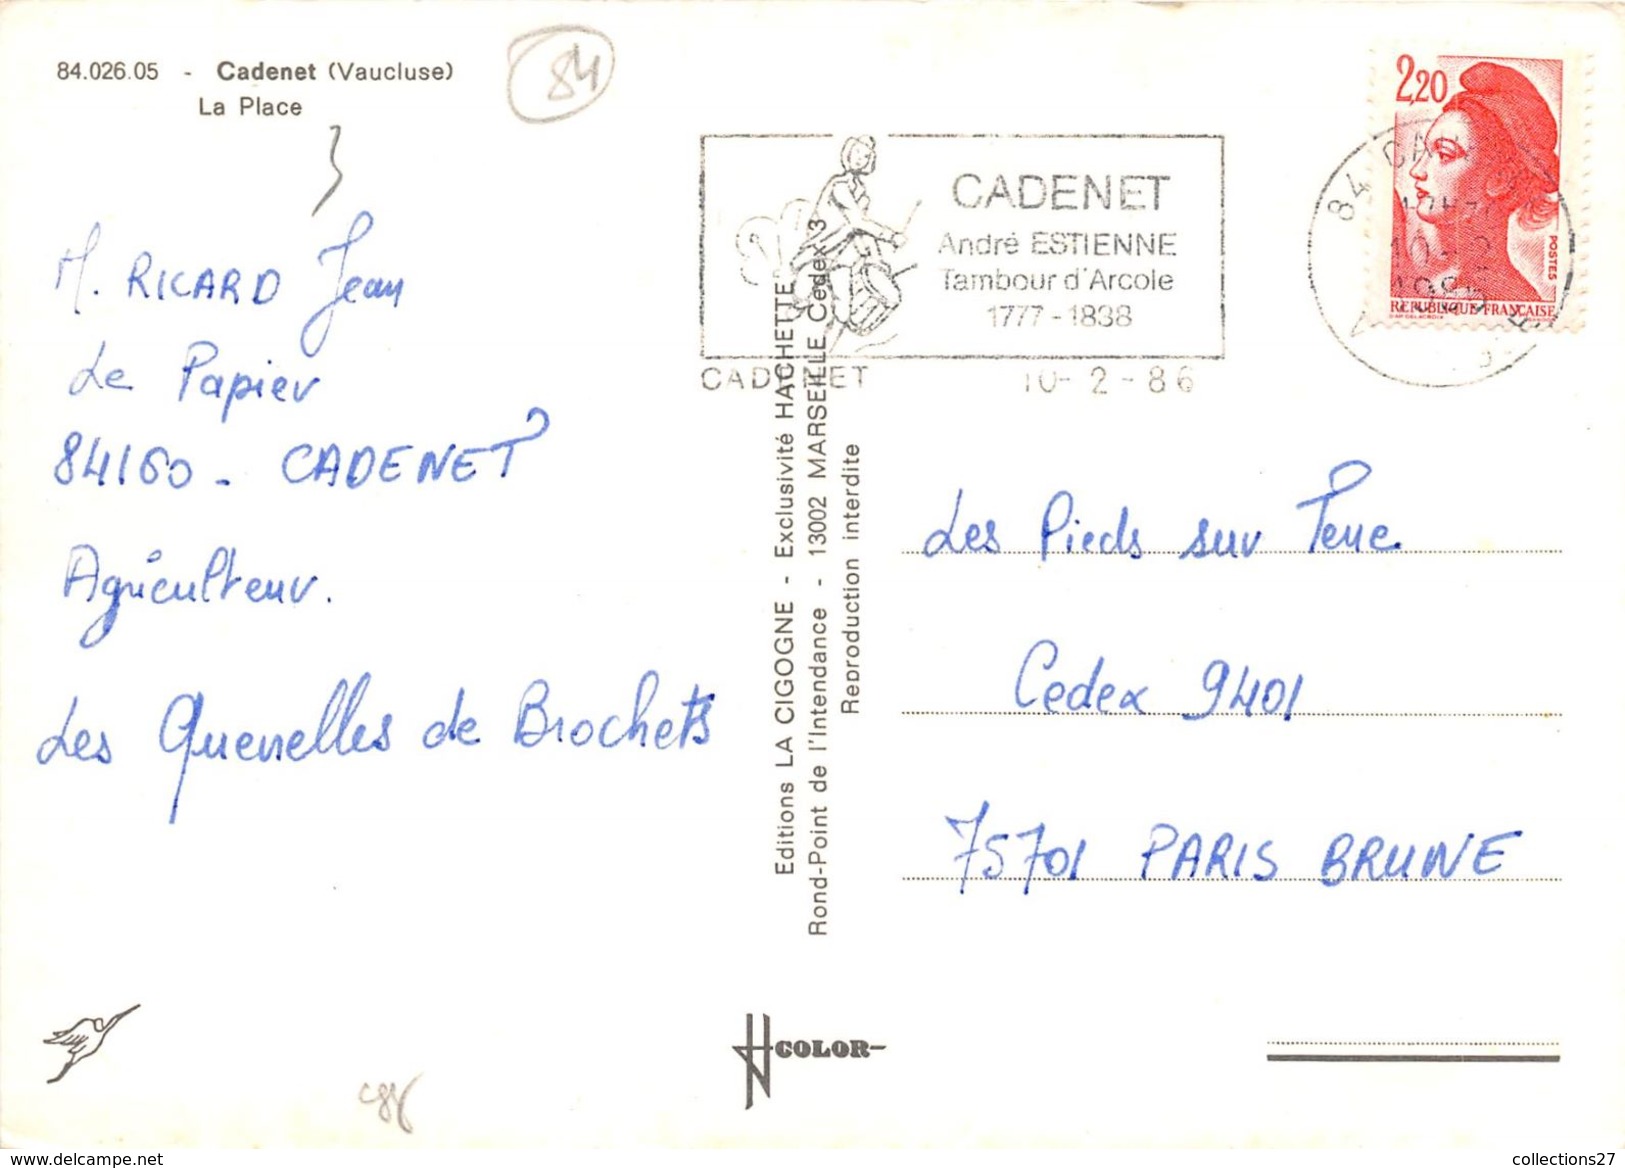 84.026.05 - Cadenet (Vaucluse)
La Place
84
M. RICARD Jean
Le Papier
84160 - CADENET
Agriculteur.
Les Quenelles de Brochets
CADENET
André ESTIENNE
Tambour d'Arcole
1777-1838
CADENET 10-2-86
2,20
POSTES
REPUBLIQUE FRANÇAISE
84 CADENET
10-2
1986
Editions LA CIGOGNE - Exclusivité HACHETTE
Rond-Point de l'Intendance - 13002 MARSEILLE Cedex 3
Reproduction interdite
Les Pieds sur Terre
Cedex 9401
75701 PARIS BRUNE
COLOR
collections27
www.delcampe.net